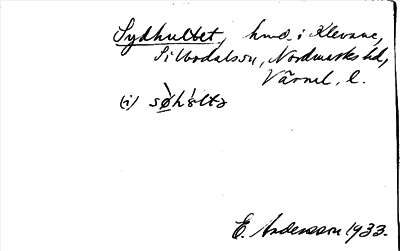 Sydhultet, hmd. i Klevane,
Silbodalssn, Nordmarks hd,
Värml. l.
(i) sø̀hʹɷltə
E. Andersson 1933.